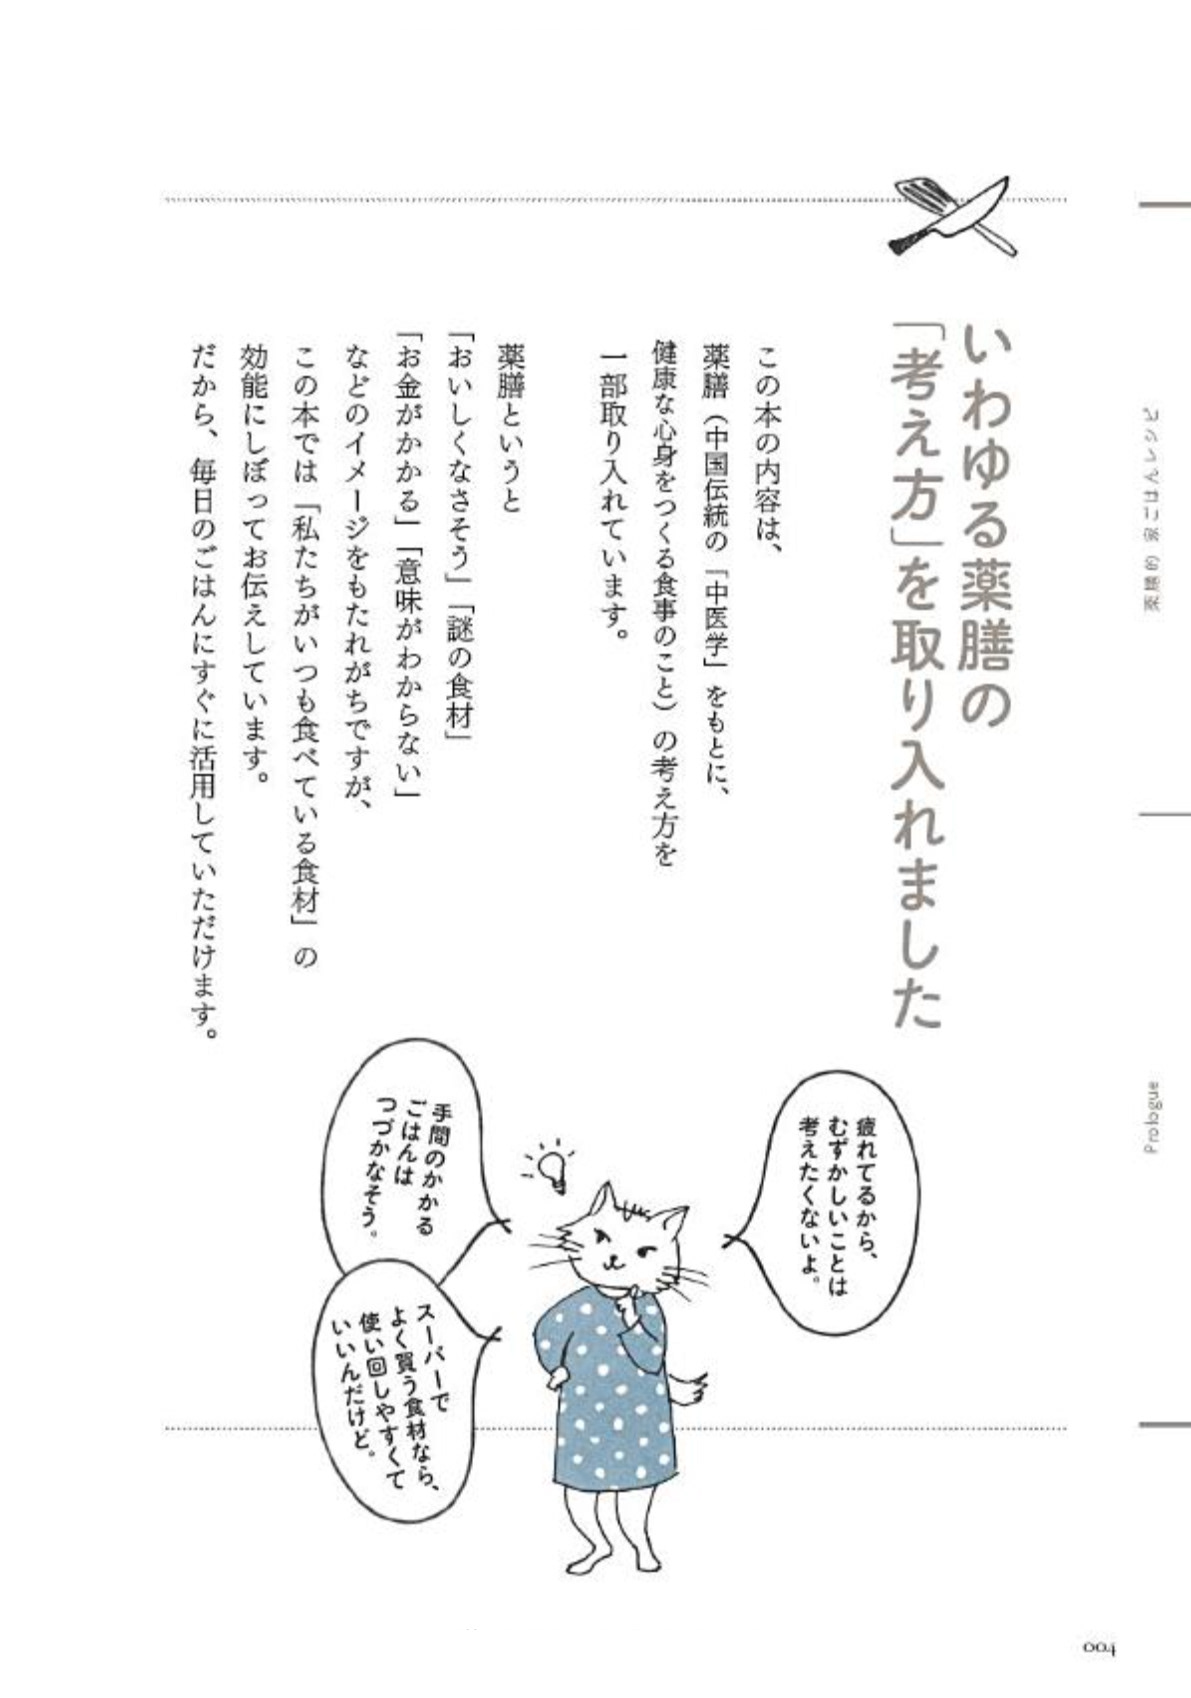 いわゆる薬膳の
「考え方」を取り入れました
この本の内容は、
薬膳（中国伝統の「中医学」をもとに、
健康な心身をつくる食事のこと）の考え方を
一部取り入れています。
薬膳というと
「おいしくなさそう」「謎の食材」
「お金がかかる」「意味がわからない」
などのイメージをもたれがちですが、
この本では「私たちがいつも食べている食材」の
効能にしぼってお伝えしています。
だから、毎日のごはんにすぐに活用していただけます。
疲れてるから、
むずかしいことは
考えたくないよ。
手間のかかる
ごはんは
つづかなそう。
スーパーで
よく買う食材なら、
使い回しやすくて
いいんだけど。
薬膳的 家ごはんレシピ
Prologue
004